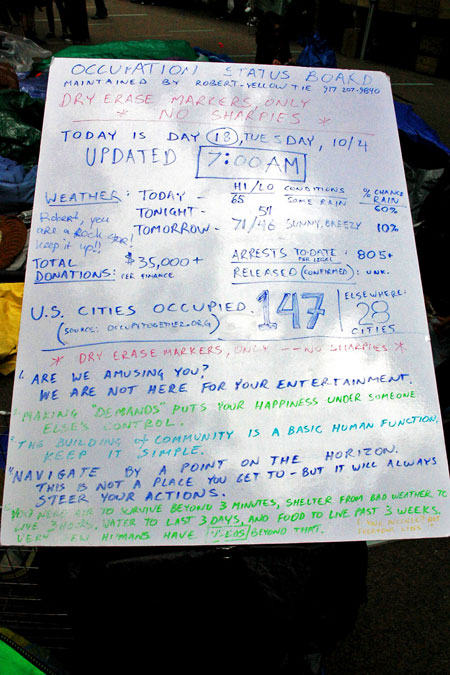 OCCUPATION STATUS BOARD
MAINTAINED BY ROBERT-YELLOW TIE 917 207-9840
DRY ERASE MARKERS, ONLY
* NO SHARPIES *
TODAY IS DAY 18, TUESDAY, 10/4
UPDATED 7:00AM
HI/LO CONDITIONS % CHANCE RAIN
WEATHER: TODAY - 65 SOME RAIN 60%
TONIGHT - 54
TOMORROW - 71/46 SUNNY, BREEZY 10%
Robert, you
are a Rock Star!
keep it up!!
TOTAL DONATIONS: $35,000+
PER FINANCE
ARRESTS TO-DATE: 805+
PER LEGAL
RELEASED (CONFIRMED): UNK.
U.S. CITIES OCCUPIED. 147
(SOURCE: OCCUPYTOGETHER.ORG)
ELSEWHERE:
28
CITIES
* DRY ERASE MARKERS, ONLY -- NO SHARPIES *
1. ARE WE AMUSING YOU?
WE ARE NOT HERE FOR YOUR ENTERTAINMENT.
MAKING "DEMANDS" PUTS YOUR HAPPINESS UNDER SOMEONE
ELSE'S CONTROL.
THE BUILDING of COMMUNITY IS A BASIC HUMAN FUNCTION,
KEEP IT SIMPLE.
NAVIGATE BY A POINT ON THE HORIZON.
THIS IS NOT A PLACE YOU GET TO - BUT IT WILL ALWAYS
STEER YOUR ACTIONS.
YOU NEED AIR TO SURVIVE BEYOND 3 MINUTES, SHELTER FROM BAD WEATHER TO
LIVE 3 HOURS, WATER TO LAST 3 DAYS, AND FOOD TO LIVE PAST 3 WEEKS.
VERY FEW HUMANS HAVE BEYOND THAT.